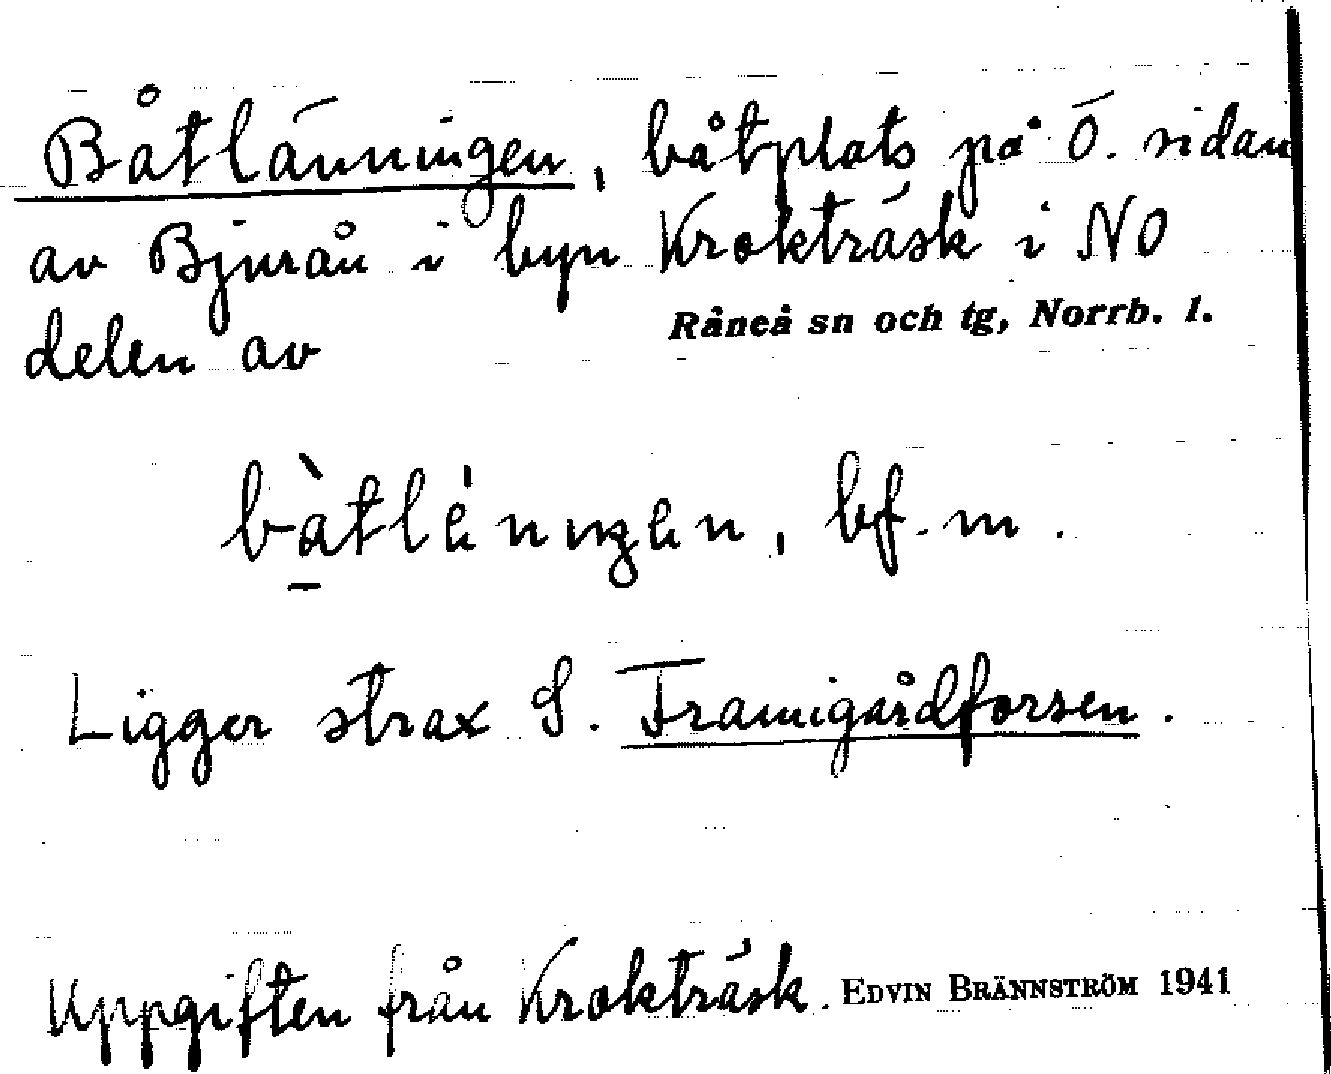 Båtlänningen, båtplats på Ö. sidan
av Bjuråu i byn Krokträsk i NO
delen av Råneå sn och tg, Norrb. l.
bf. m.
Ligger strax S. Framigårdforsen.
Uppgiften från Krokträsk. EDVIN BRÄNNSTRÖM 1941